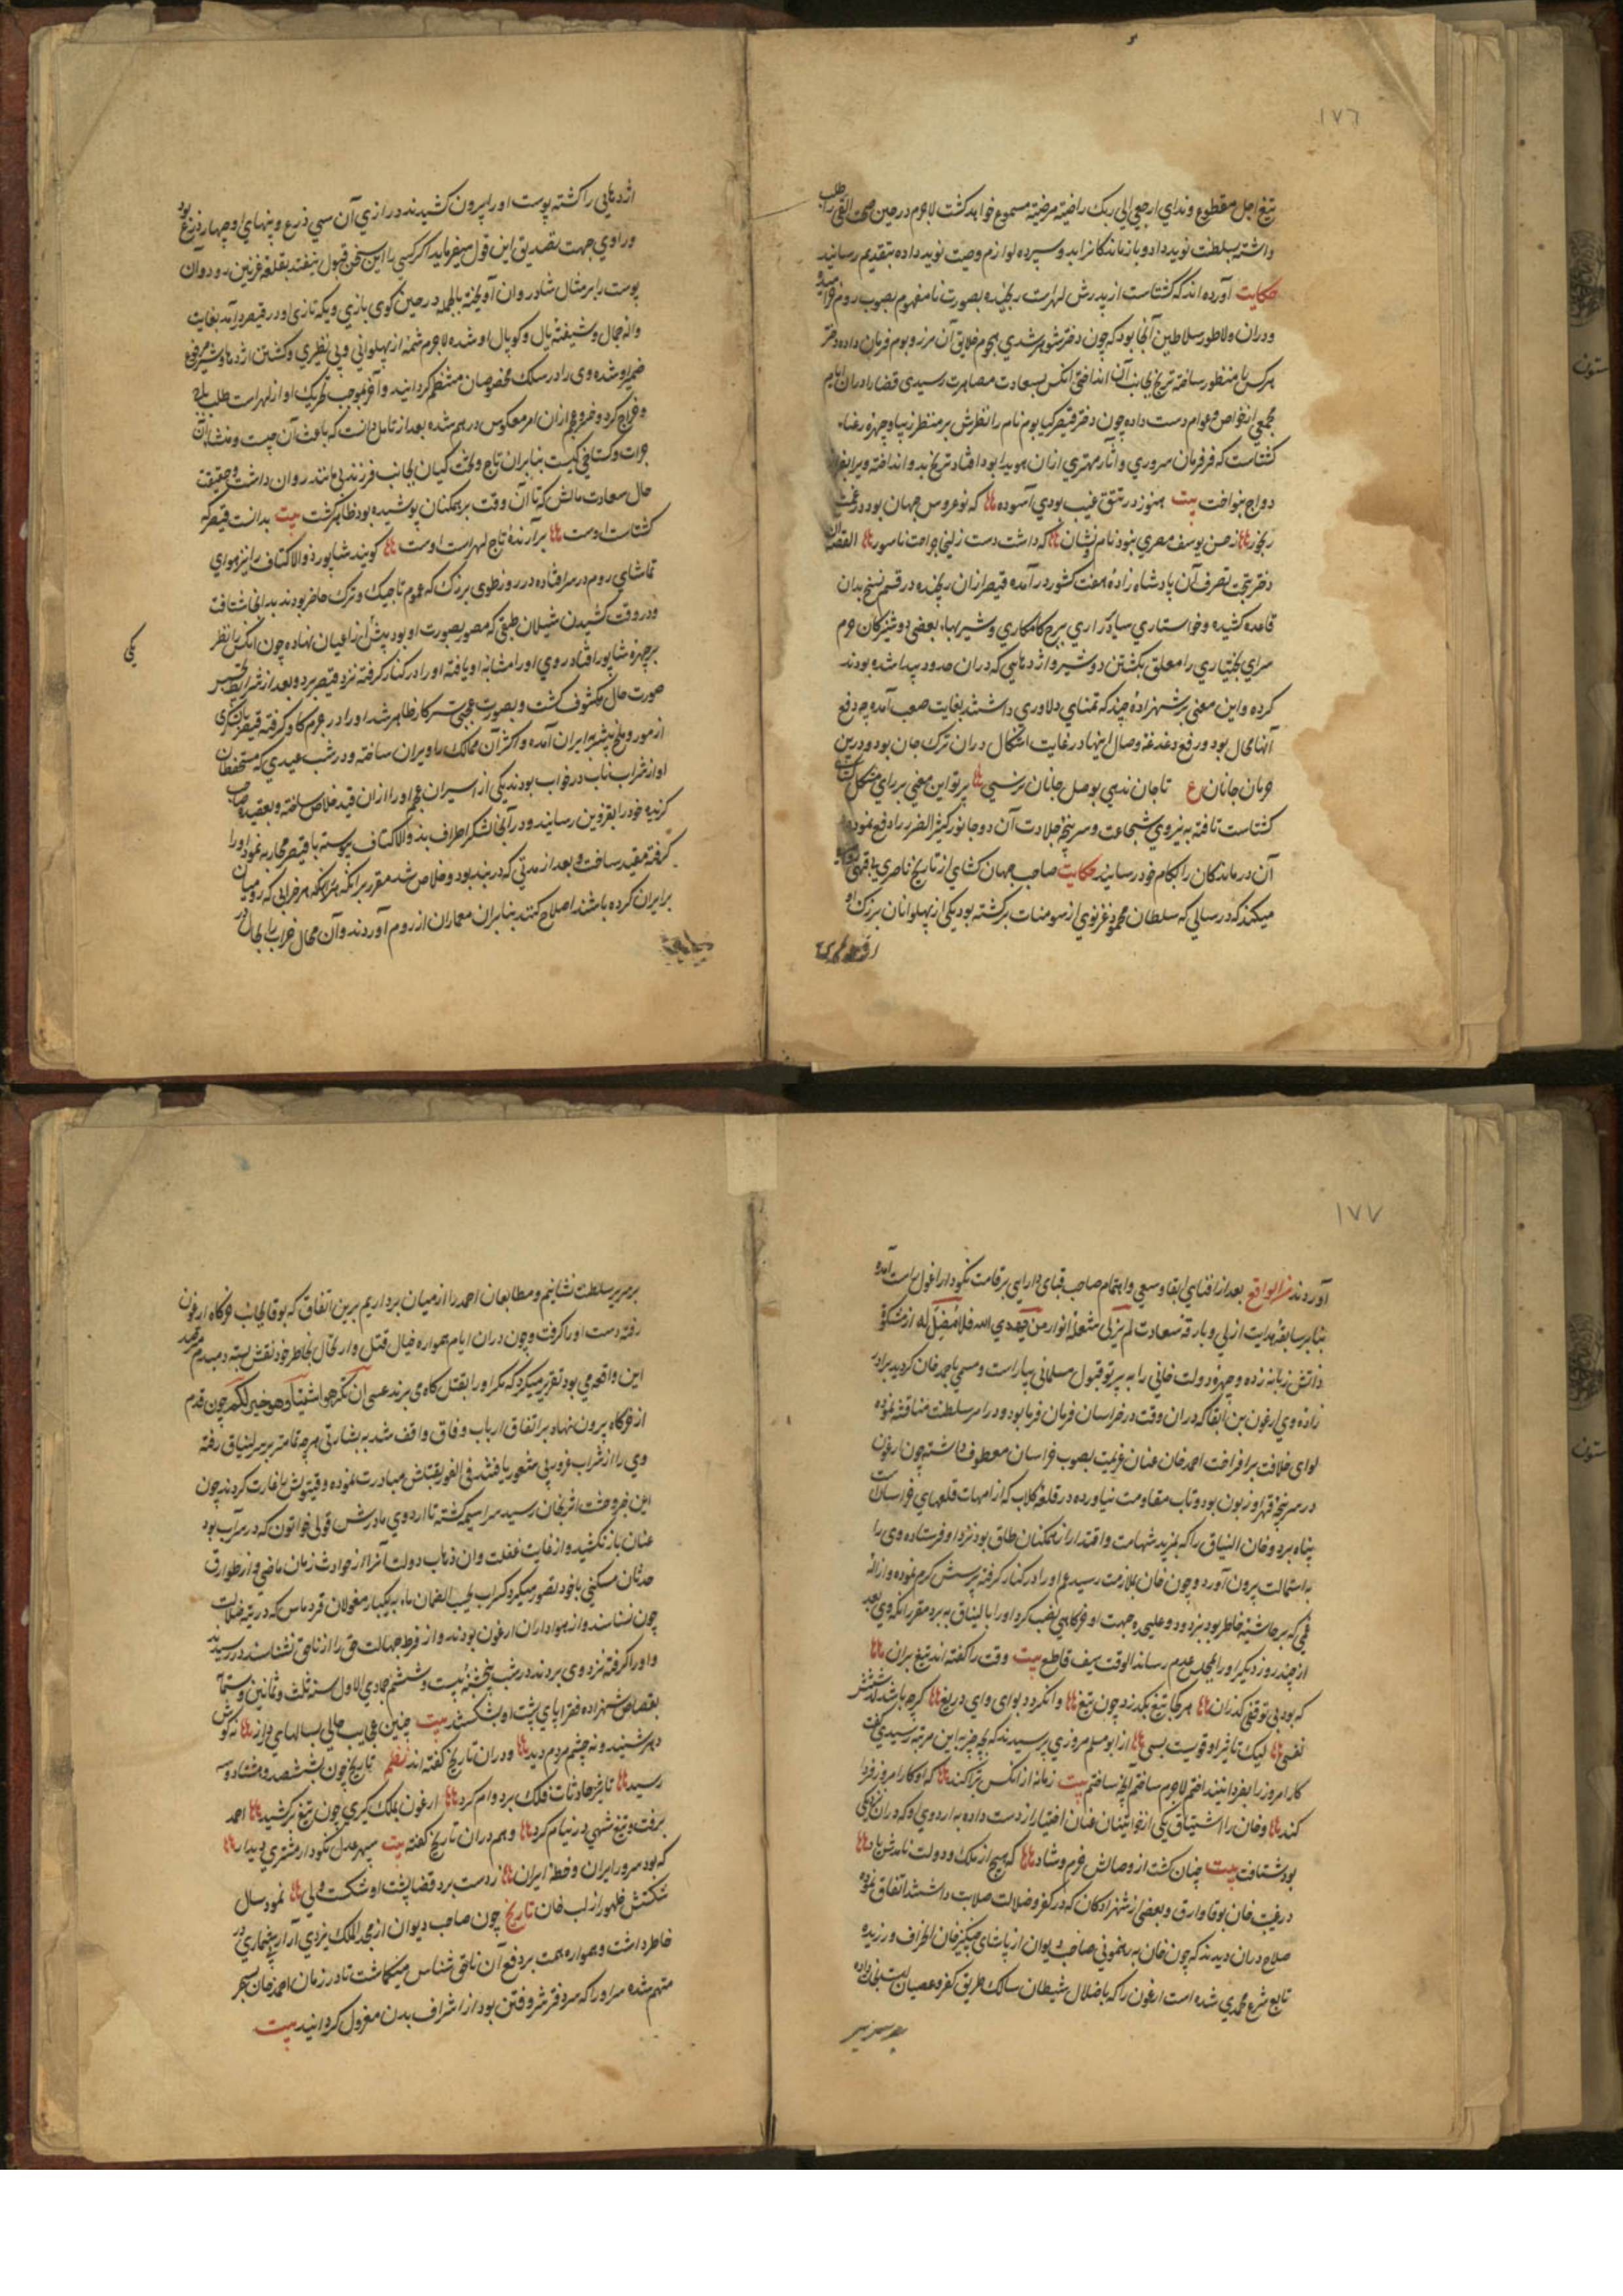 ١٧٦
تیغ اجل مقطوع و ندای ارجعی الی ربک راضیة مرضیة مسموع خواهد گشت لاجرم در حین
داشته بسلطنت نوید داد و بازماندگانرا بدو سپرده لوازم وصیت نوید داده بتقدیم رسانید
حکایت آورده اند که گشتاسب از پدرش لهراسب رنجیده بصورت نامفهوم بصوب روم
و دران ولا طور سلاطین آنجا بود که چون دختر شوهر شدی هجوم خلایق آن مرز و بوم فرمان داده دختر
هر کس را منظور ساخته ترنج بجانب آن انداختی انکس بسعادت مصاهرت رسیدی قضا را دران ایام
مجمعی از خواص و عوام دست داده چون دختر قیصر کتایون نام را نظرش بر منظر زیبا و چهره رعناء
گشتاسب که فر فرمان سروری و آثار مهتری ازان هویدا بود افتاد ترنج بدو انداخته ویرا
دواج بنواخت بیت هنوز در تتق غیب بودی آسوده که نوعروس جهان بود در
رنجور ز حسن یوسف مصری نبود نام و نشان که داشت دست زلیخا جراحت ناسور القصه
دختر بتحت تصرف آن پادشاه زاده هفت کشور در آمده قیصر ازان رنجیده در قسم نسخ بدان
قاعده کشیده و خواستاری سایر دراری برج کامکاری و شیربهاء بعضی دوشیزگان حرم
سرای بختیاری را معلق بکشتن دو شیر و اژدهایی که دران حدود پیدا شده بودند
کرده و این معنی بر شهزادهٔ چند که تمنای دلاوری داشتند بغایت صعب آمده چه دفع
آنها محال بود و رفع دغدغهٔ وصال اینها در غایت اشکال دران ترک جان بود و درین
حرمان جانان ع تا جان ندهی بوصل جانان نرسی پرتو این معنی بر رای مشکل
گشتاسب تافته به نیروی شجاعت و سرپنجهٔ جلادت آن دو جانور کثیر الضرر را دفع نموده
آن درماندگان را بکام خود رسانید حکایت صاحب جهان گشای از تاریخ ناصری
میکند که در سالی که سلطان محمود غزنوی از سومنات برگشته بود یکی از پهلوانان بزرگ او
اژدهایی را کشته پوست او را بیرون کشیدند درازی آن سی ذرع و پهنای او چهار ذرع بود
و راوی جهت تصدیق این قول میفرماید اگر کسی را این سخن قبول نیفتد بقلعه غزنین رود و آن
پوست را بر مثال شادروان آویخته بالجمله در حین گوی بازی و یکه تازی او در قیصر درآمد بغایت
واله جمال و شیفتهٔ یال و کوپال او شده لاجرم شمهٔ از پهلوانی و بی نظیری و کشتن اژدها و شیر مرفوع
ضمیر او شده وی را در سلک مخصوصان منتظم گردانید و آخر بموجب تحریک او از لهراسب طلب باج
و خراج کرد و خروجی ازان امر معکوس درهم شده بعد از تامل دانست که باعث آن چیست و منشاء آن
جرات و گستاخی کیست بنابران تاج و تخت کیان بجانب فرزند بی مانند روان داشت و حقیقت
حال سعادت مالش که تا آن وقت بر همکنان پوشیده بود ظاهر گشت بیت بدانست قیصر که
گشتاسب اوست برآرندهٔ تاج لهراسب اوست گویند شاپور ذوالاکتاف را نیز هوای
تماشای روم در سر افتاده در روز طوی بزرگ که عموم تاجیک و ترک حاضر بودند بدانجا شتافت
و در وقت کشیدن شیلان طبقی که مصور بصورت او بود پیش آن اعیان نهاده چون انکس را نظر
بر چهره شاپور افتاد روی او را مشابه او یافته او را در کنار گرفته نزد قیصر برد و بعد از شرایط تجسس
صورت حال مکشوف گشت و بصورت عجبی سر کار ظاهر شد او را در چرم گاو گرفته قیصر
از مور و ملخ بیشتر بایران آمده و اکثر آن ممالک را ویران ساخته و در شب عیدی که مستحفظان
او از شراب ناب در خواب بودند یکی از اسیران عجم او را ازان قید خلاص ساخته و بعقیده صاحب
گزیده خود را بقزوین رسانید و در آنجا لشکر اطراف بذوالاکتاف پیوسته با قیصر محاربه نمود او را
گرفته مقید ساخت و بعد از مدتی که در بند بود خلاص شد مقرر برانکه هر خرابی که رومیان
بر ایران کرده باشند اصلاح کنند بنابران معماران از روم آوردند و آن محال خراب را بحال
١٧٧
آوردند من الوقایع بعد از افنای ابقا و سعی و اهتمام صاحب قبای دارایی بر قامت نکودار اغول راست آمده
بنابر سابقهٔ هدایت ازلی و بارقهٔ سعادت لم یزلی مشعلهٔ انوار من یهدی الله فلا مضل له از مشکوة
ذاتش زبانه زده و چهرهٔ دولت خانی را به پرتو قبول مسلمانی بیاراست و مسمی باحمد خان گردید برادر
زادهٔ وی ارغون بن ابقا که دران وقت در خراسان فرمان فرما بود و در امر سلطنت مناقشه نموده
لوای خلافت برافراخت احمد خان عنان عزیمت بصوب خراسان معطوف داشته چون ارغون
در سرپنجهٔ قهر او زبون بود و تاب مقاومت نیاورده در قلعهٔ کلاب که از امهات قلعهای خراسانست
پناه برد و خان الیناق را که بمزید شهامت و اقتدار از همکنان طاق بود نزد او فرستاده وی را
به استمالت بیرون آورد و چون خان بملازمت رسید عم او را در کنار گرفته پرسش کرم نموده و ازاله
غمی که بر حاشیهٔ خاطر بود بزدود و علیحده جهت او خرگاهی نصب کرد او را بالیناق به برد مقرر انکه وی بعد
از چند روز دیگر او را بمجلس عدم رساند الوقت سیف قاطع بیت وقت را گفته اند تیغ بران
که بود بی توقفی گذران هر کجا تیغ بگذرد چون تیغ وانکرد د بوای وای دریغ گرچه باشد
نفسی لیک تاثیر او قویست بسی از ابو مسلم مروزی پرسیدند که بچه چیز باین مرتبه رسیدی گفت
کار امروز را بفردا نینداختم لاجرم ساختم آنچه ساختم بیت زمانه از انکس تبرا کند که او کار امروز فردا
کند و خان را اشتیاق یکی از خواتینان عنان اختیار از دست داده به اردوی او که دران نزدیکی
بود شتافت بیت چنان گشت از وصالش خرم و شاد که هیچ از ملک و دولت نامدش یاد
در غیبت خان بوقا و اروق و بعضی از شهزادگان که در کفر و ضلالت صلابت داشتند اتفاق نموده
صلاح دران دیدند که چون خان به رهنمونی صاحب دیوان از یاسای چنگیز خان انحراف ورزیده
تابع شرع محمدی شده است ارغون را که باضلال شیطان سالک طریق کفر و عصیان است نجات داده
بر سریر سلطنت نشانیم و مطابعان احمد را از میان برداریم برین اتفاق که بوقا بجانب خرگاه ارغون
رفته دست او را گرفت و چون دران ایام همواره خیال قتل و ارتحال بخاطر خود نقش بسته دمبدم مترصد
این واقعه می بود تقریر میکرد که مگر او را بقتل گاه می برند عسی ان تکرهوا شیئا و هو خیر لکم چون قدم
از خرگاه بیرون نهاد بر اتفاق ارباب وفاق واقف شد به بشارتی هر چه تمامتر بر سر الیناق رفته
وی را از شراب غرور بی شعور یافتند فی الفور بقتلش مبادرت نموده و قیتولش بغارت کردند چون
این خبر وحشت اثر بخان رسید سراسیمه گشته تا اردوی مادرش قوتی خواتون که در سراب بود
عنان بازنکشید و از غایت غفلت و ان ذهاب دولت آنرا از حوادث زمان ماضی و از طوارق
حدثان مسکینی با خود تصور میکرد کسراب یحسبه الظمآن ماء به یکبار مغولان قردماس که در تیه ضلالت
چون نسناسند و از هواداران ارغون بودند و از فرط جهالت حق را از ناحق نشناسند در رسیدند
و او را گرفته نزد وی بردند در شب پنجشنبه بیست و ششم جمادی الاول سنه ثلث و ثمانین و ستمائه
بقصاص شهزاده قنقرا بای پشت او بشکستند بیت چنین عجایب حالی بسالهای دراز نه گوش
دهر شنید و نه چشم مردم دید و دران تاریخ گفته اند نظم تاریخ چون بششصد و هشتاد و سه
رسید تاثیر حادثات فلک بر دوام کرد ارغون بملک گیری چون تیغ برکشید احمد
برفت و تیغ شهی در نیام کرد و هم دران تاریخ گفته بیت سپهر عدل نکودار مشتری دیدار
که بود سرور ایران و خطهٔ ایران ز دست برد قضا پشت او شکست ولی نمود سال
شکستش ظهور از لب خان تاریخ چون صاحب دیوان از مجد الملک یزدی آزار بیشماری در
خاطر داشت و همواره همت بر دفع آن ناحق شناس میگماشت تا در زمان احمد خان بسحر
متهم شده سر او را که سر دفتر شر و فتن بود از اشراف بدن معزول گردانید بیت